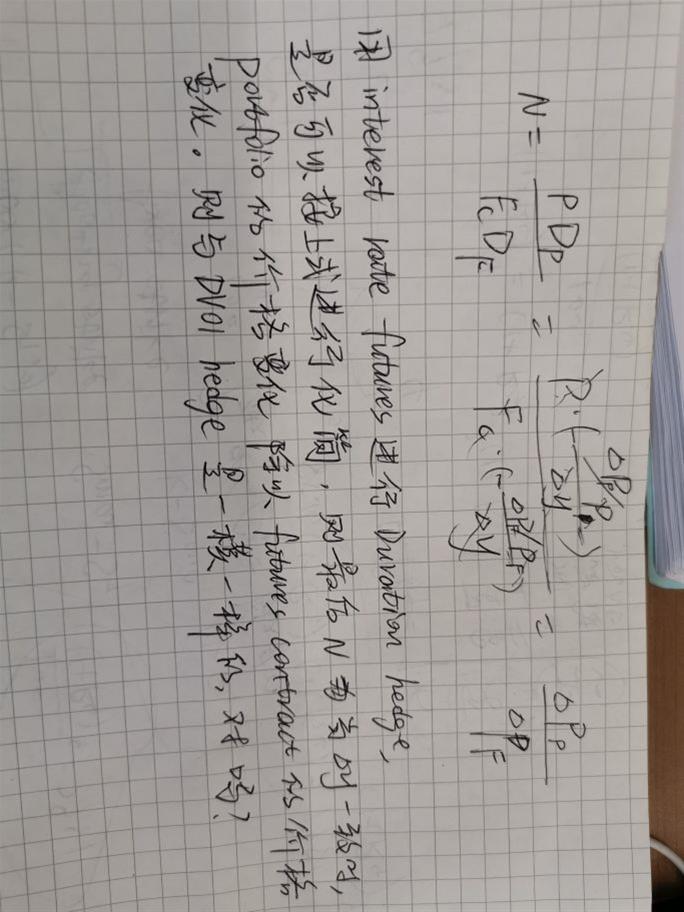 N = \frac{P D_P}{F_C D_F} = \frac{P \cdot (-\frac{\Delta P/P}{\Delta y})}{F_C \cdot (-\frac{\Delta P/P_F}{\Delta y})} = \frac{\Delta P_P}{\Delta P_F}
用 interest rate futures 进行 Duration hedge,
是否可以按上式进行化简, 则最后 N 为当Δy一致时,
portfolio 的价格变化除以 futures contract 的价格
变化。则与 DV01 hedge 是一模一样的, 对吗?